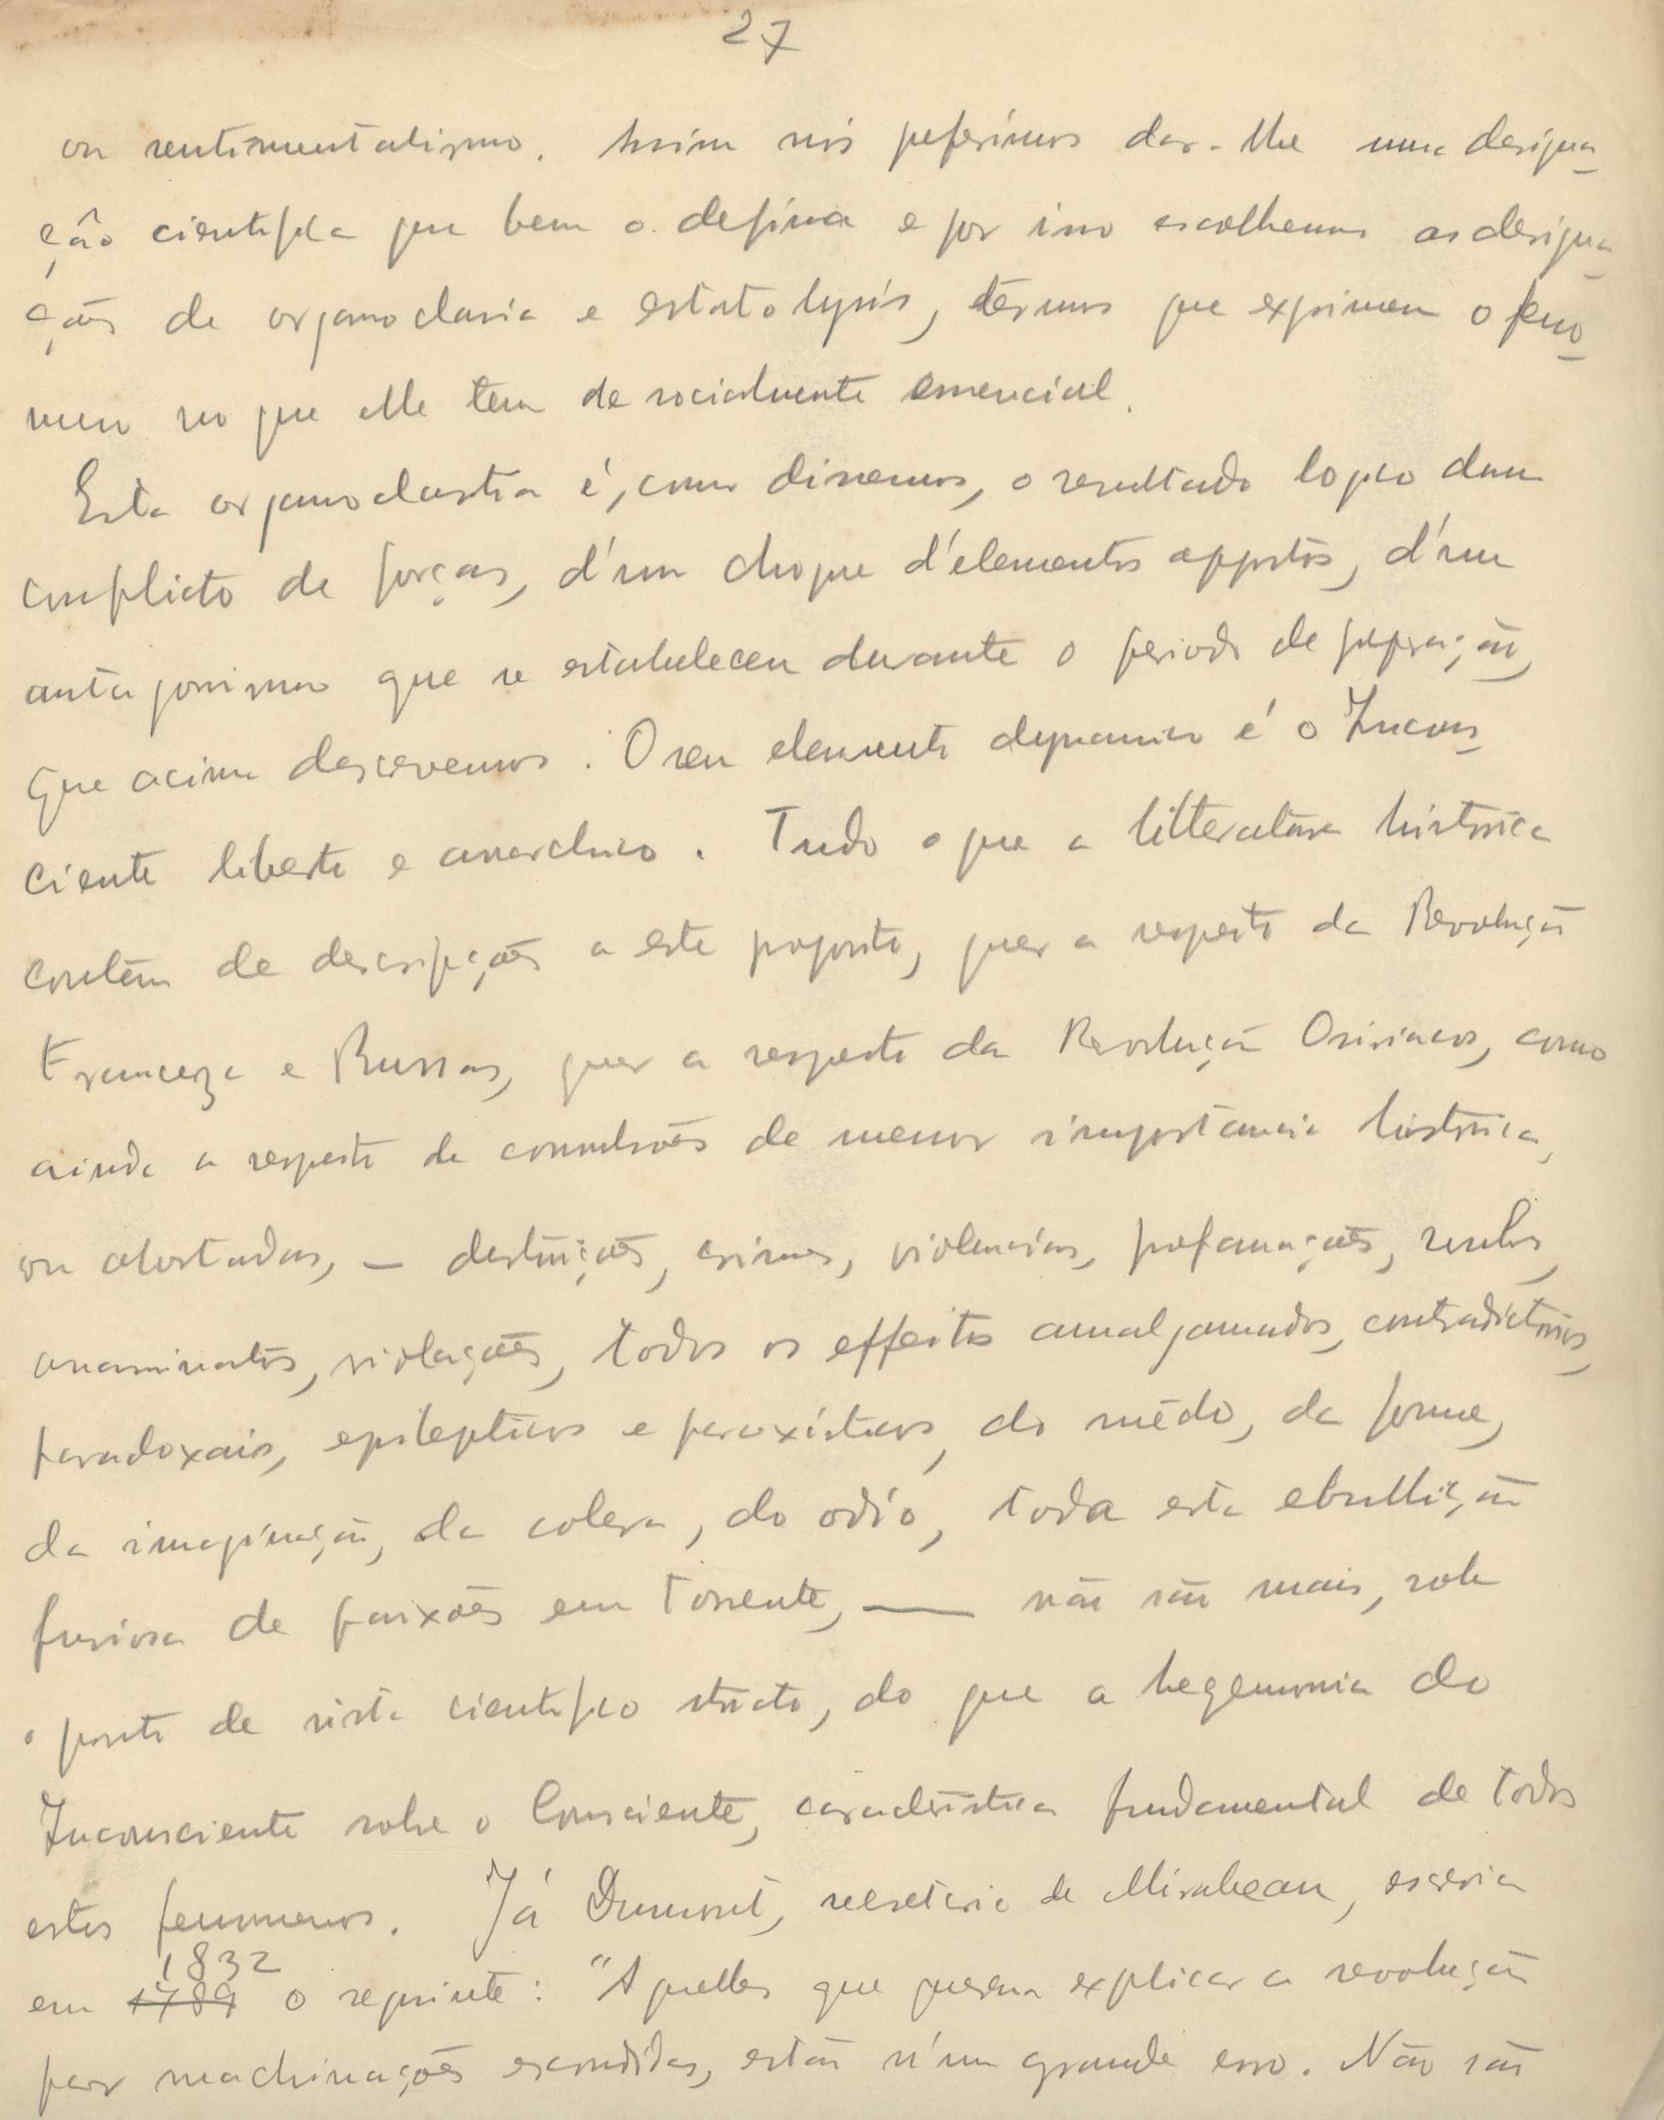 27
ou sentimentalismo. Assim nós preferimos dar-lhe uma designa-
ção cientifica que bem o defina e por isso escolhemos as designa-
ções de organoclasia e estatolysis, têrmos que exprimem o fenó-
meno no que elle tem de socialmente essencial.
Esta organoclastia é, como dissemos, o resultado logico dum
conflicto de forças, d'um choque d'elementos oppostos, d'um
antagonismo que se estabeleceu durante o periodo de preparação,
que acima descrevemos. O seu elemento dynamico é o Incons-
ciente liberto e anarchico. Tudo o que a litteratura histórica
contêm de descripções a este proposito, quer a respeito da Revolução
Franceza e Russas, quer a respeito da Revolução Osiriacos, como
ainda a respeito de convulsões de menor importância histórica,
ou abortadas, — destruições, crimes, violencias, profanações, roubos,
assassinatos, violações, todos os effeitos amalgamados, contradictorios,
paradoxais, epilepticos e paroxísticos, do mêdo, da fome,
da imaginação, da colera, do odío, toda esta ebullição
furiosa de paixões em torrente, — não são mais, sob
o ponto de vista cientifico stricto, do que a hegemonia do
Inconsciente sobre o Consciente, característica fundamental de todos
estes fenomenos. Já Dumont, secretario de Mirabeau, escrevia
em 1789 1832 o seguinte: "Aquelles que querem explicar a revolução
por machinações escondidas, estão n'um grande erro. Não são